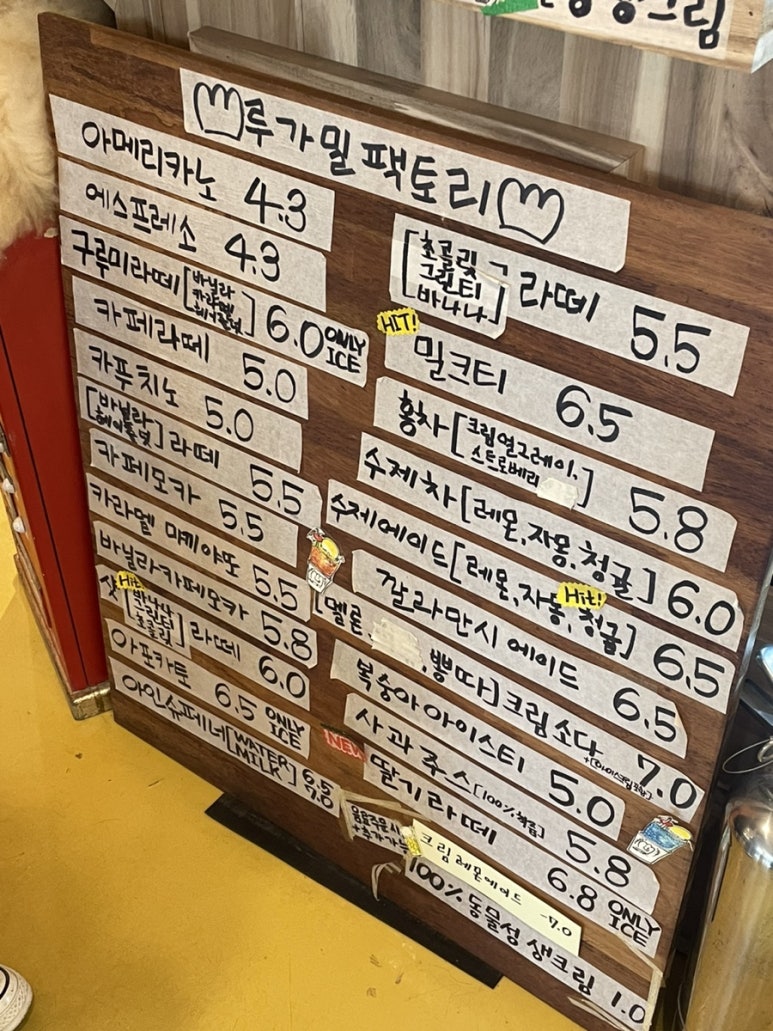 루가밀팩토리
아메리카노 4.3
에스프레소 4.3
구루미라떼 [바닐라 카라멜 헤이즐넛] 6.0 ONLY ICE
카페라떼 5.0
카푸치노 5.0
[바닐라 헤이즐넛] 라떼 5.5
카페모카 5.5
카라멜 마끼야또 5.5
바닐라카페모카 5.8
Hit!
샷 [바나나 그린티 초콜릿] 라떼 6.0
아포카토 6.5 ONLY ICE
아인슈페너 [WATER 6.5
MILK] 7.0
[초콜릿 그린티 바나나] 라떼 5.5
HIT!
밀크티 6.5
홍차 [크림얼그레이, 스트로베리] 5.8
수제차 [레몬, 자몽, 청귤] 6.0
수제에이드 [레몬, 자몽, 청귤] 6.5
Hit!
깔라만시 에이드 6.5
[멜론, 뽕따] 크림소다 7.0
복숭아아이스티 5.0
사과주스 [100%착즙] 5.8
NEW
딸기라떼 6.8 ONLY ICE
크림레몬에이드 -7.0
+추가가능
100% 동물성 생크림 1.0